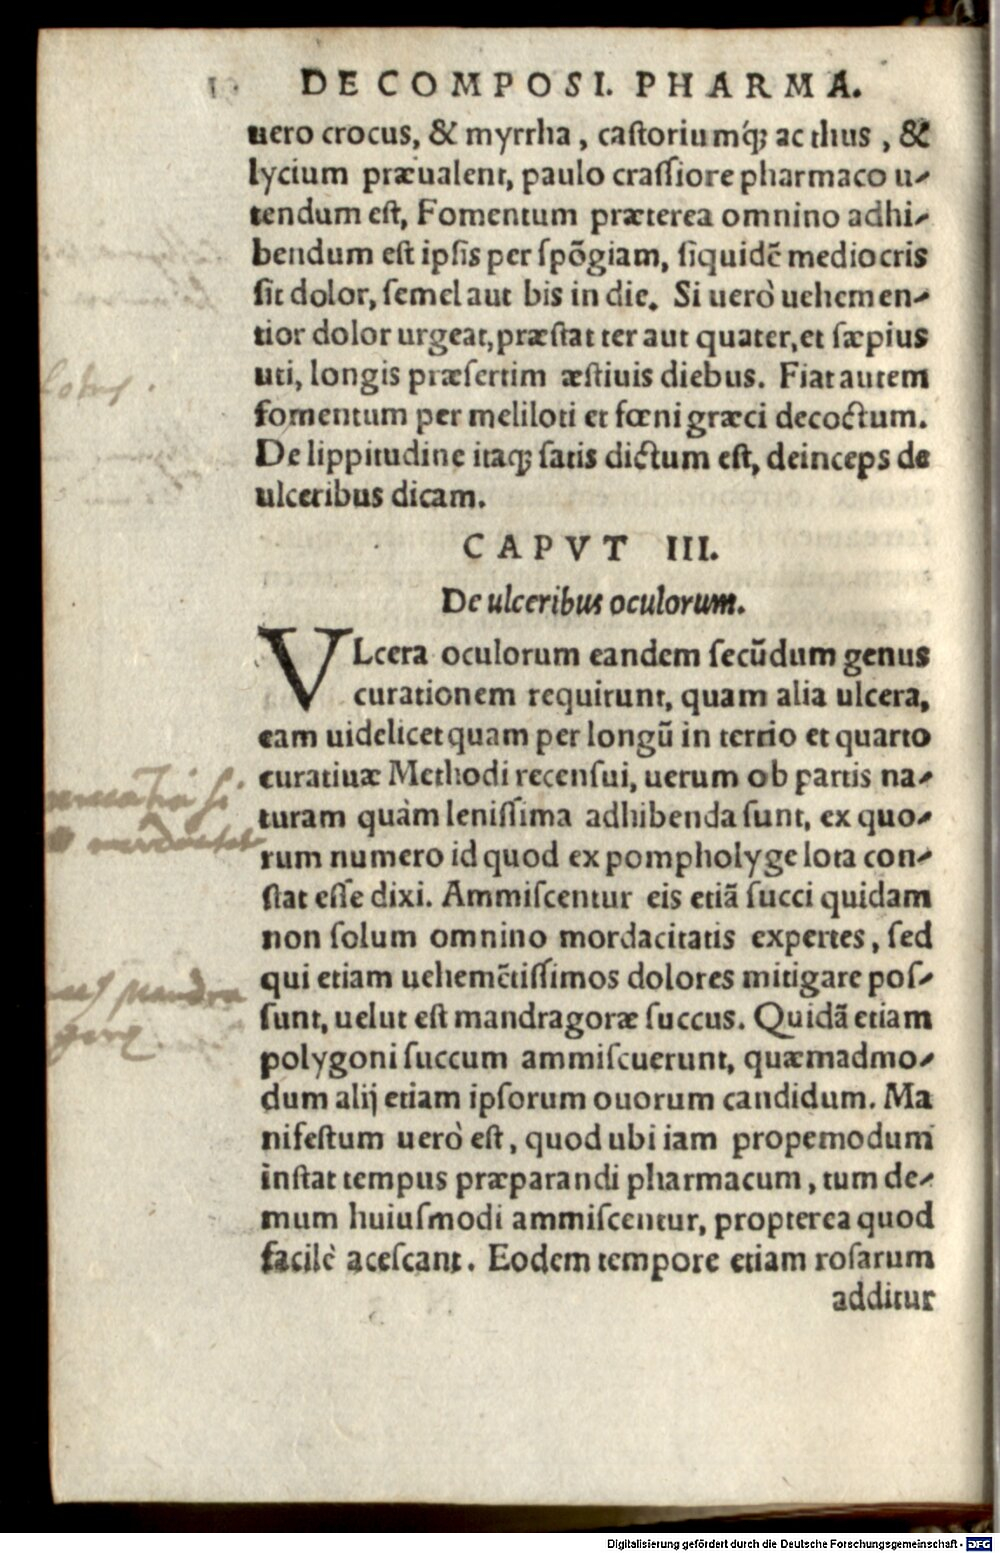 DE COMPOSI. PHARMA.
uero crocus, & myrrha, castoriumq́; ac thus, &
lycium præualent, paulo crassiore pharmaco u-
tendum est, Fomentum præterea omnino adhi-
bendum est ipsis per spõgiam, siquidẽ mediocris
sit dolor, semel aut bis in die. Si uerò uehemen-
tior dolor urgeat, præstat ter aut quater, et sæpius
uti, longis præsertim æstiuis diebus. Fiat autem
fomentum per meliloti et fœni græci decoctum.
De lippitudine itaq; satis dictum est, deinceps de
ulceribus dicam.
CAPVT III.
De ulceribus oculorum.
VLcera oculorum eandem secũdum genus
curationem requirunt, quam alia ulcera,
eam uidelicet quam per longũ in tertio et quarto
curatiuæ Methodi recensui, uerum ob partis na-
turam quàm lenissima adhibenda sunt, ex quo-
rum numero id quod ex pompholyge lota con-
stat esse dixi. Ammiscentur eis etiã succi quidam
non solum omnino mordacitatis expertes, sed
qui etiam uehemẽtissimos dolores mitigare pos-
sunt, uelut est mandragoræ succus. Quidã etiam
polygoni succum ammiscuerunt, quæmadmo-
dum alij etiam ipsorum ouorum candidum. Ma
nifestum uerò est, quod ubi iam propemodum
instat tempus præparandi pharmacum, tum de-
mum huiusmodi ammiscentur, propterea quod
facilè acescant. Eodem tempore etiam rosarum
additur
Digitalisierung gefördert durch die Deutsche Forschungsgemeinschaft - DFG